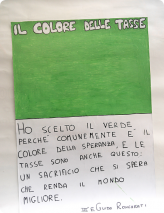 IL COLORE DELLE TASSE
HO SCELTO IL VERDE
PERCHÉ COMUNEMENTE È IL
COLORE DELLA SPERANZA, E LE
TASSE SONO ANCHE QUESTO:
UN SACRIFICIO CHE SI SPERA
CHE RENDA IL MONDO
MIGLIORE.